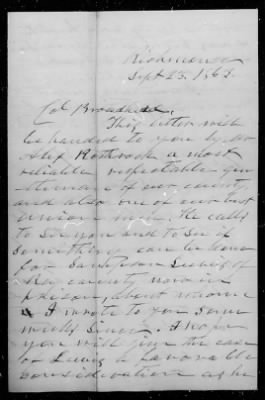 Richmond Mo
Sept 23. 1863.
Col Broadhead,
This letter will
be handed to you by Mr
Alex Rothrock a most
reliable respectable gen
tleman of our county,
and also one of our best
union men. He calls
to see you and to see if
something can be done
for Sampson Lewis of
Ray county now in
prison, about whome
I wrote to you some
weeks since. I hope
you will give the case
of Lewis a favorable
consideration as he